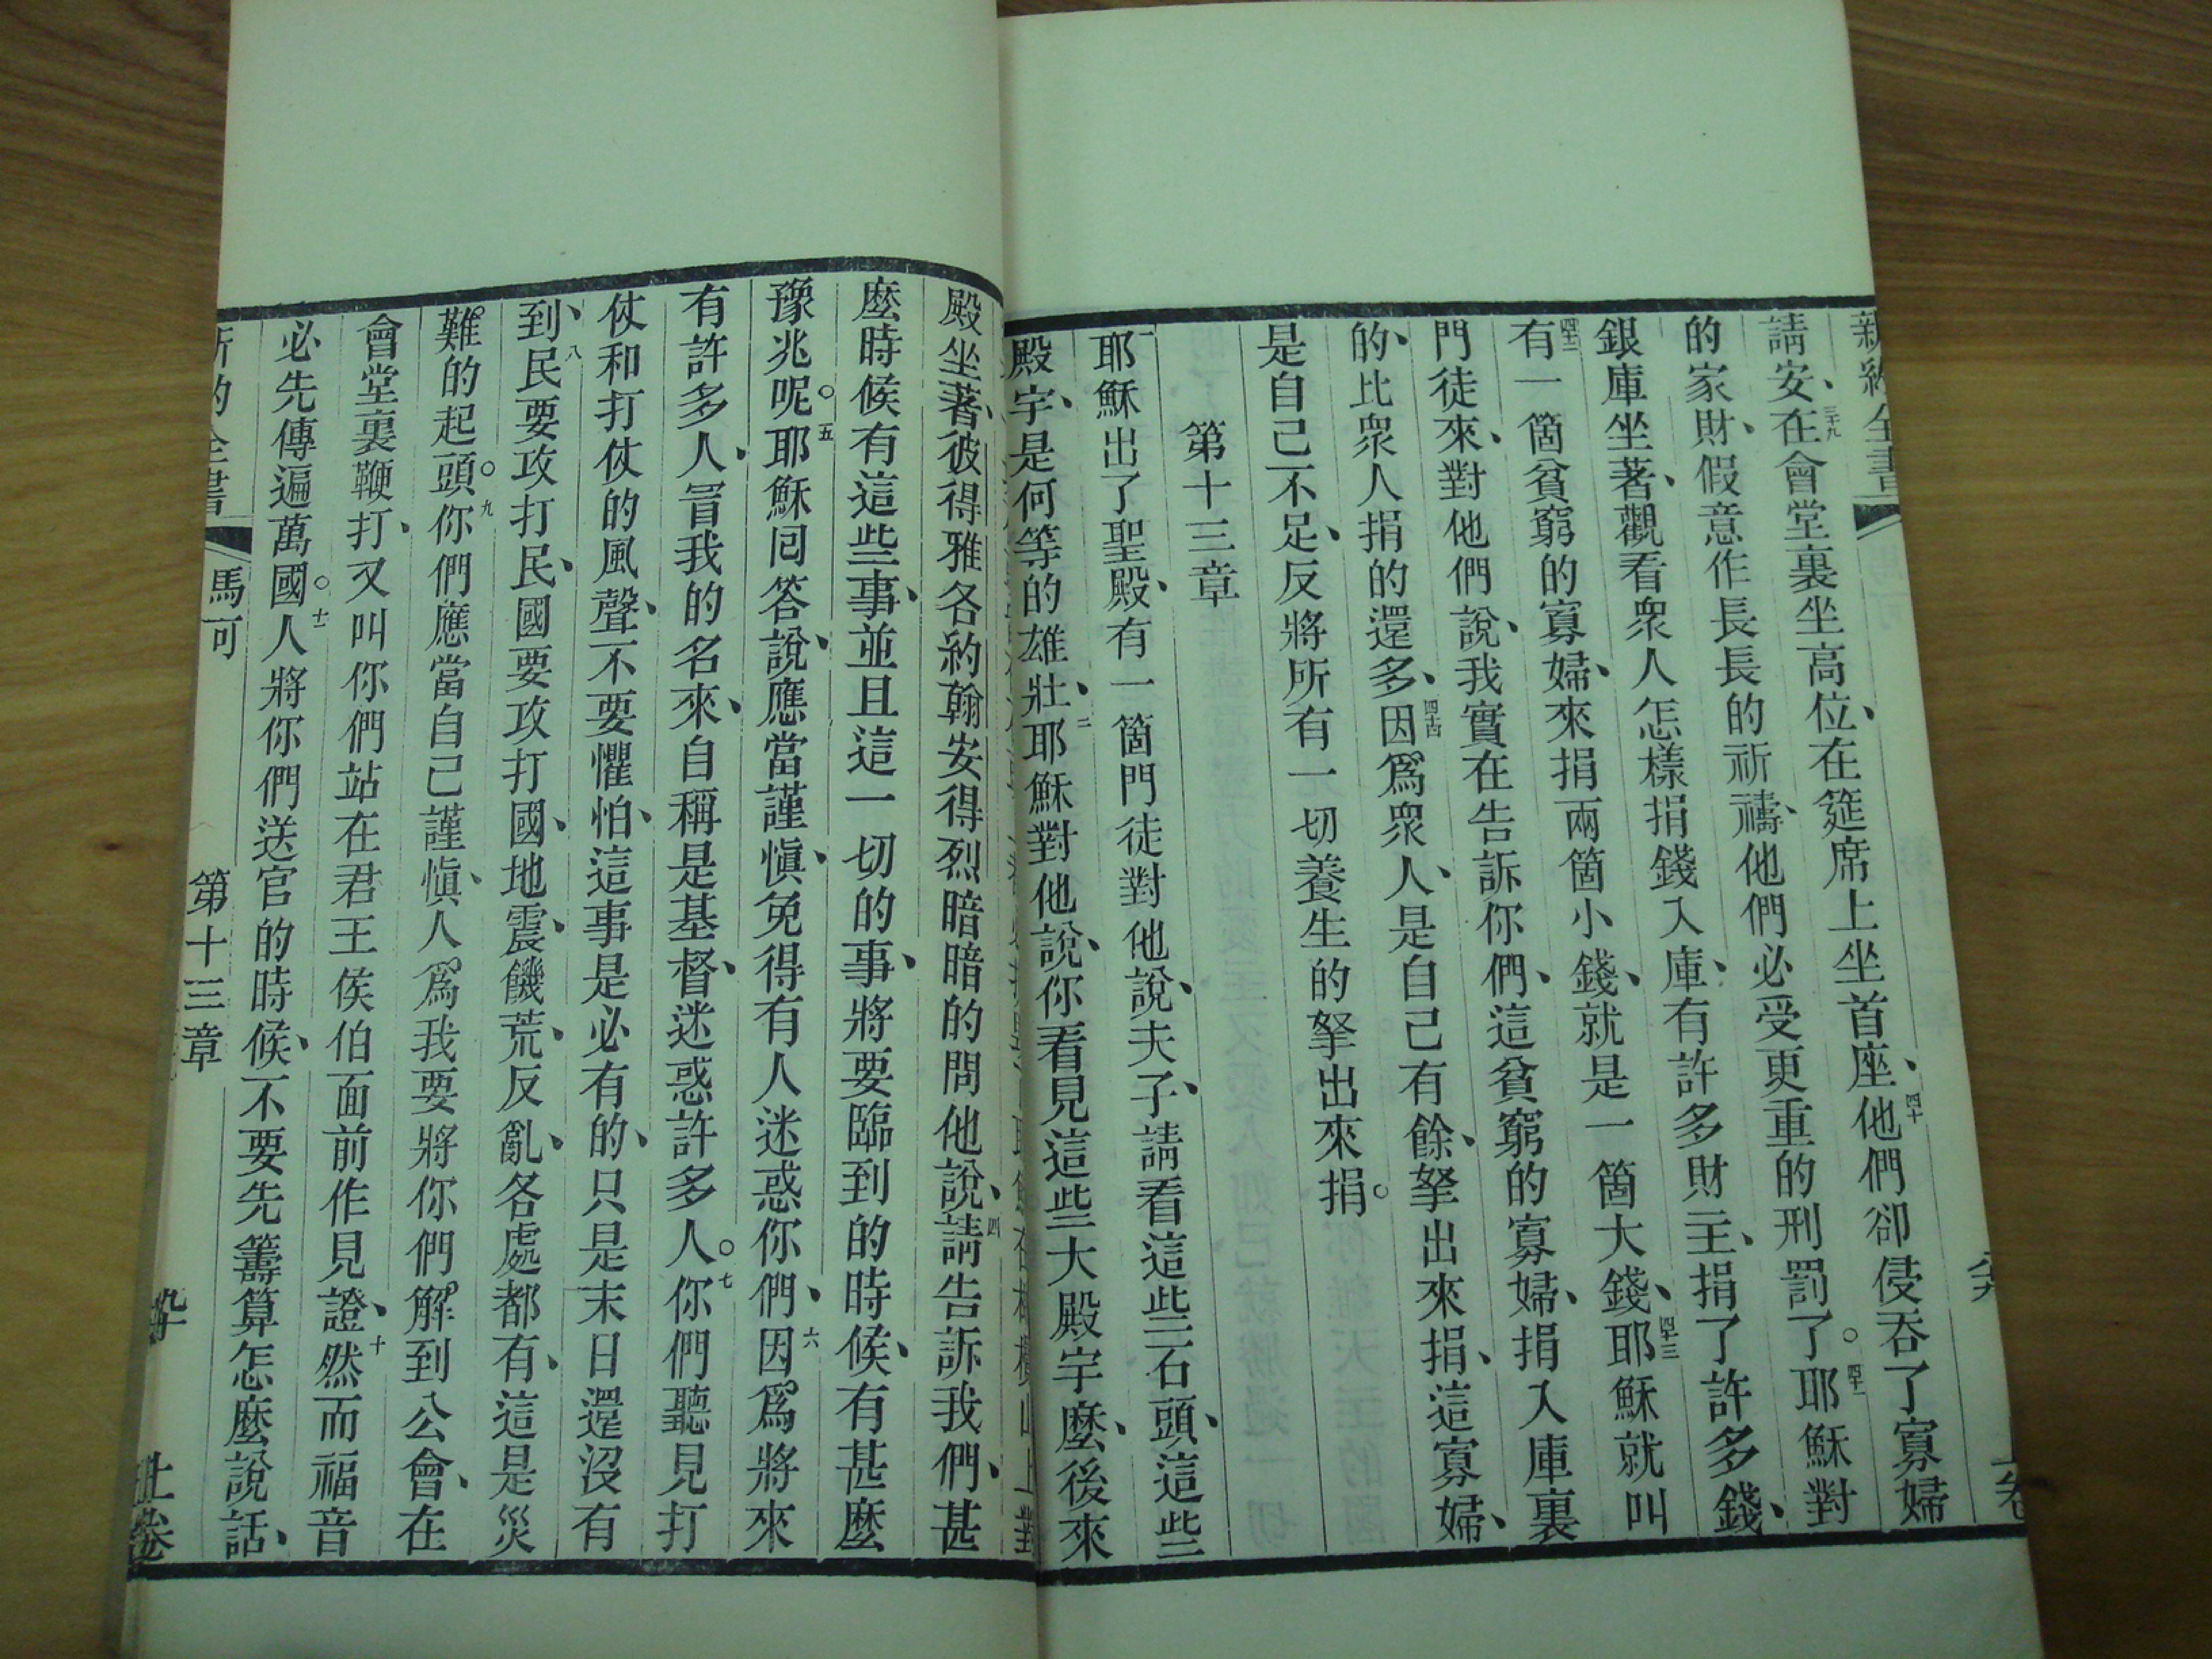 新約全書
請安、三十九在會堂裏坐高位、在筵席上坐首座、四十他們卻侵吞了寡婦
的家財、假意作長長的祈禱、他們必受更重的刑罰了。四十一耶穌對
銀庫坐著、觀看眾人怎樣捐錢入庫、有許多財主、捐了許多錢、
四十二有一箇貧窮的寡婦、來捐兩箇小錢、就是一箇大錢、四十三耶穌就叫
門徒來、對他們說、我實在告訴你們、這貧窮的寡婦、捐入庫裏
的、比眾人捐的還多、四十四因爲眾人、是自己有餘、拏出來捐、這寡婦、
是自己不足、反將所有一切養生的拏出來捐。
第十三章
一耶穌出了聖殿、有一箇門徒對他說、夫子、請看這些石頭、這些
殿宇、是何等的雄壯、二耶穌對他說、你看見這些大殿宇麼、後來
殿坐著、彼得雅各約翰安得烈暗暗的問他說、四請告訴我們、甚
麼時候有這些事、並且這一切的事、將要臨到的時候、有甚麼
豫兆呢。五耶穌回答說、應當謹慎、免得有人迷惑你們、六因爲將來
有許多人、冒我的名來、自稱是基督、迷惑許多人。七你們聽見打
仗和打仗的風聲、不要懼怕、這事是必有的、只是末日還沒有
到、八民要攻打民、國要攻打國、地震、饑荒、反亂、各處都有、這是災
難的起頭。九你們應當自己謹慎、人爲我要將你們解到公會、在
會堂裏鞭打、又叫你們站在君王侯伯面前作見證、十然而福音
必先傳遍萬國。十一人將你們送官的時候、不要先籌算怎麼說話、
馬可 第十三章 上卷